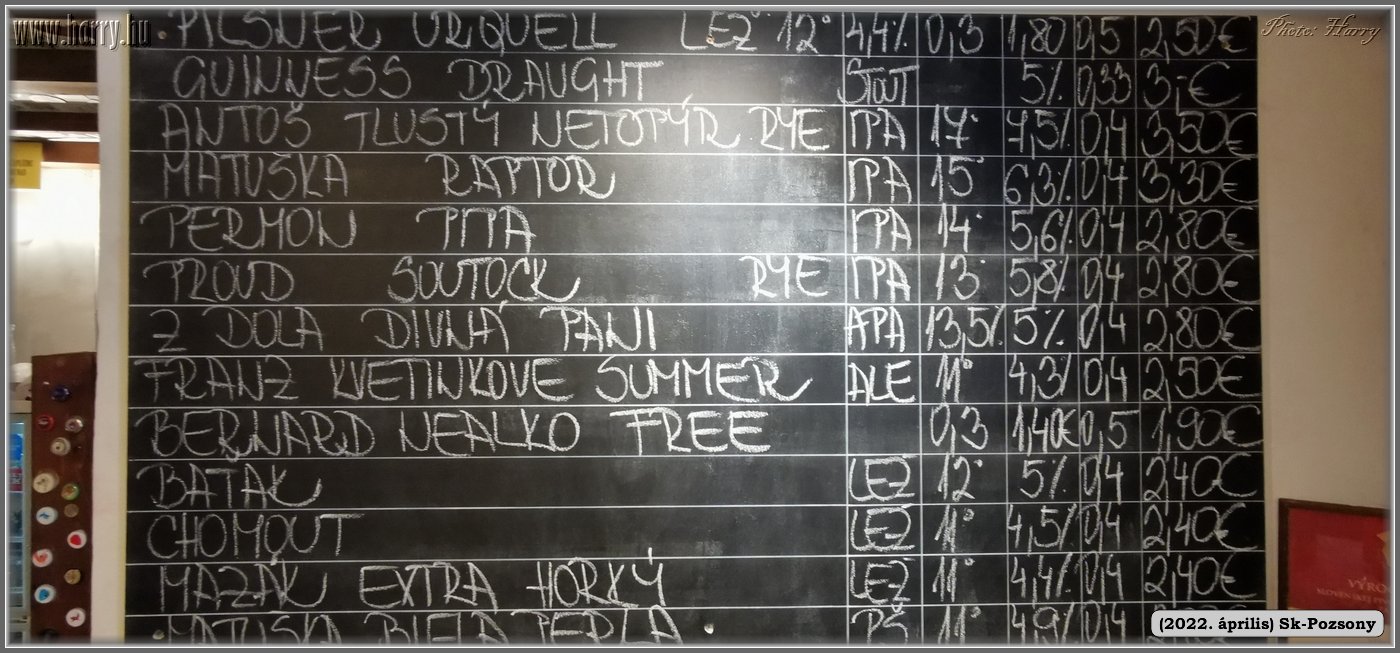 www.harry.hu
Photo: Harry
PILSNER URQUELL LEŽ 12° 4,4% 0,3 1,80 0,5 2,50€
GUINNESS DRAUGHT STOUT 5% 0,33 3,-€
ANTOŠ TLUSTÝ NETOPÝR RYE IPA 17° 7,5% 0,4 3,50€
MATUŠKA RAPTOR IPA 15° 6,3% 0,4 3,30€
PERMON PIPA IPA 14° 5,6% 0,4 2,80€
PROUD SOUTOCK RYE IPA 13° 5,8% 0,4 2,80€
Z DOLA DIVNÁ PANI APA 13,5% 5% 0,4 2,80€
FRANZ KVETINKOVE SUMMER ALE 11° 4,3% 0,4 2,50€
BERNARD NEALKO FREE 0,3 1,40€ 0,5 1,90€
BATAK LEŽ 12° 5% 0,4 2,40€
CHOMOUT LEŽ 11° 4,5% 0,4 2,40€
MAZÁK EXTRA HORKÝ LEŽ 11° 4,4% 0,4 2,40€
MATUŠKA BIELA PERLA PŠ 11° 4,9% 0,4
VÝRO
SLOVENSKEJ
(2022. április) Sk-Pozsony